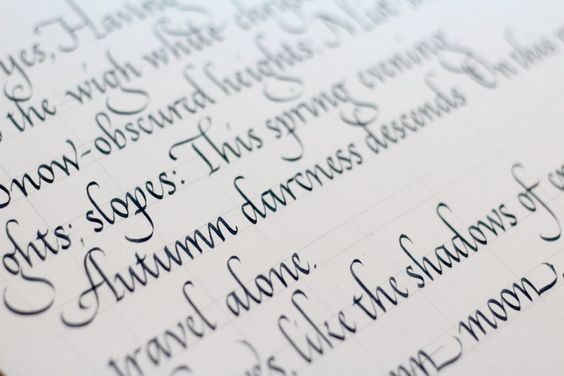 yes, Having
the wigh white
now-obscured heights: Mist
ghts; slopes: This spring evening
Autumn darcness descends On this
travel alone.
like the shadows of
moon,